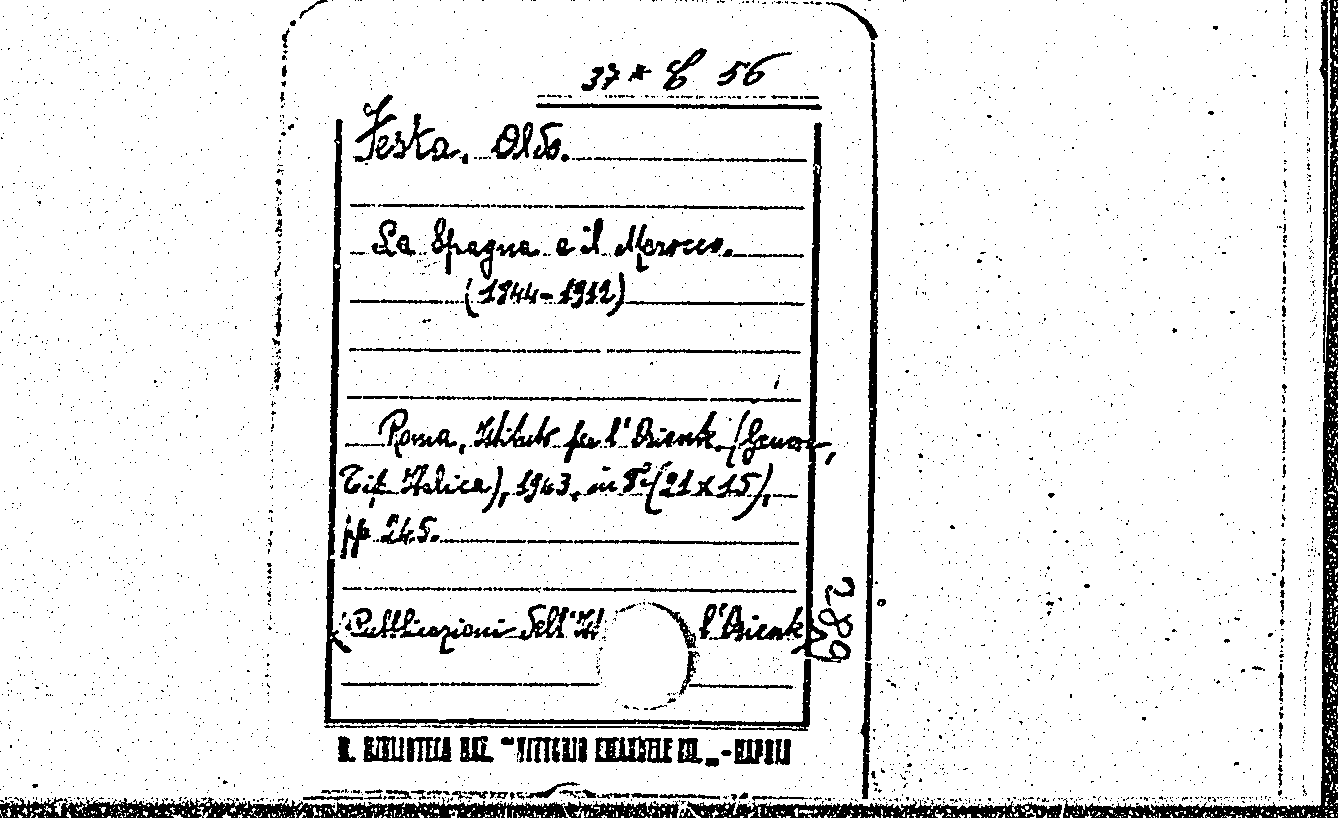 37* C 56
Festa, Aldo.
La Spagna e il Marocco.
(1844-1912)
Roma, Istituto per l'Oriente, (Genova,
Tip. Italica), 1943, in 8° (21 x 15),
pp. 245.
(Pubblicazioni dell'Ist l'Oriente)
289
R. BIBLIOTECA NAZ. "VITTORIO EMANUELE III" - NAPOLI